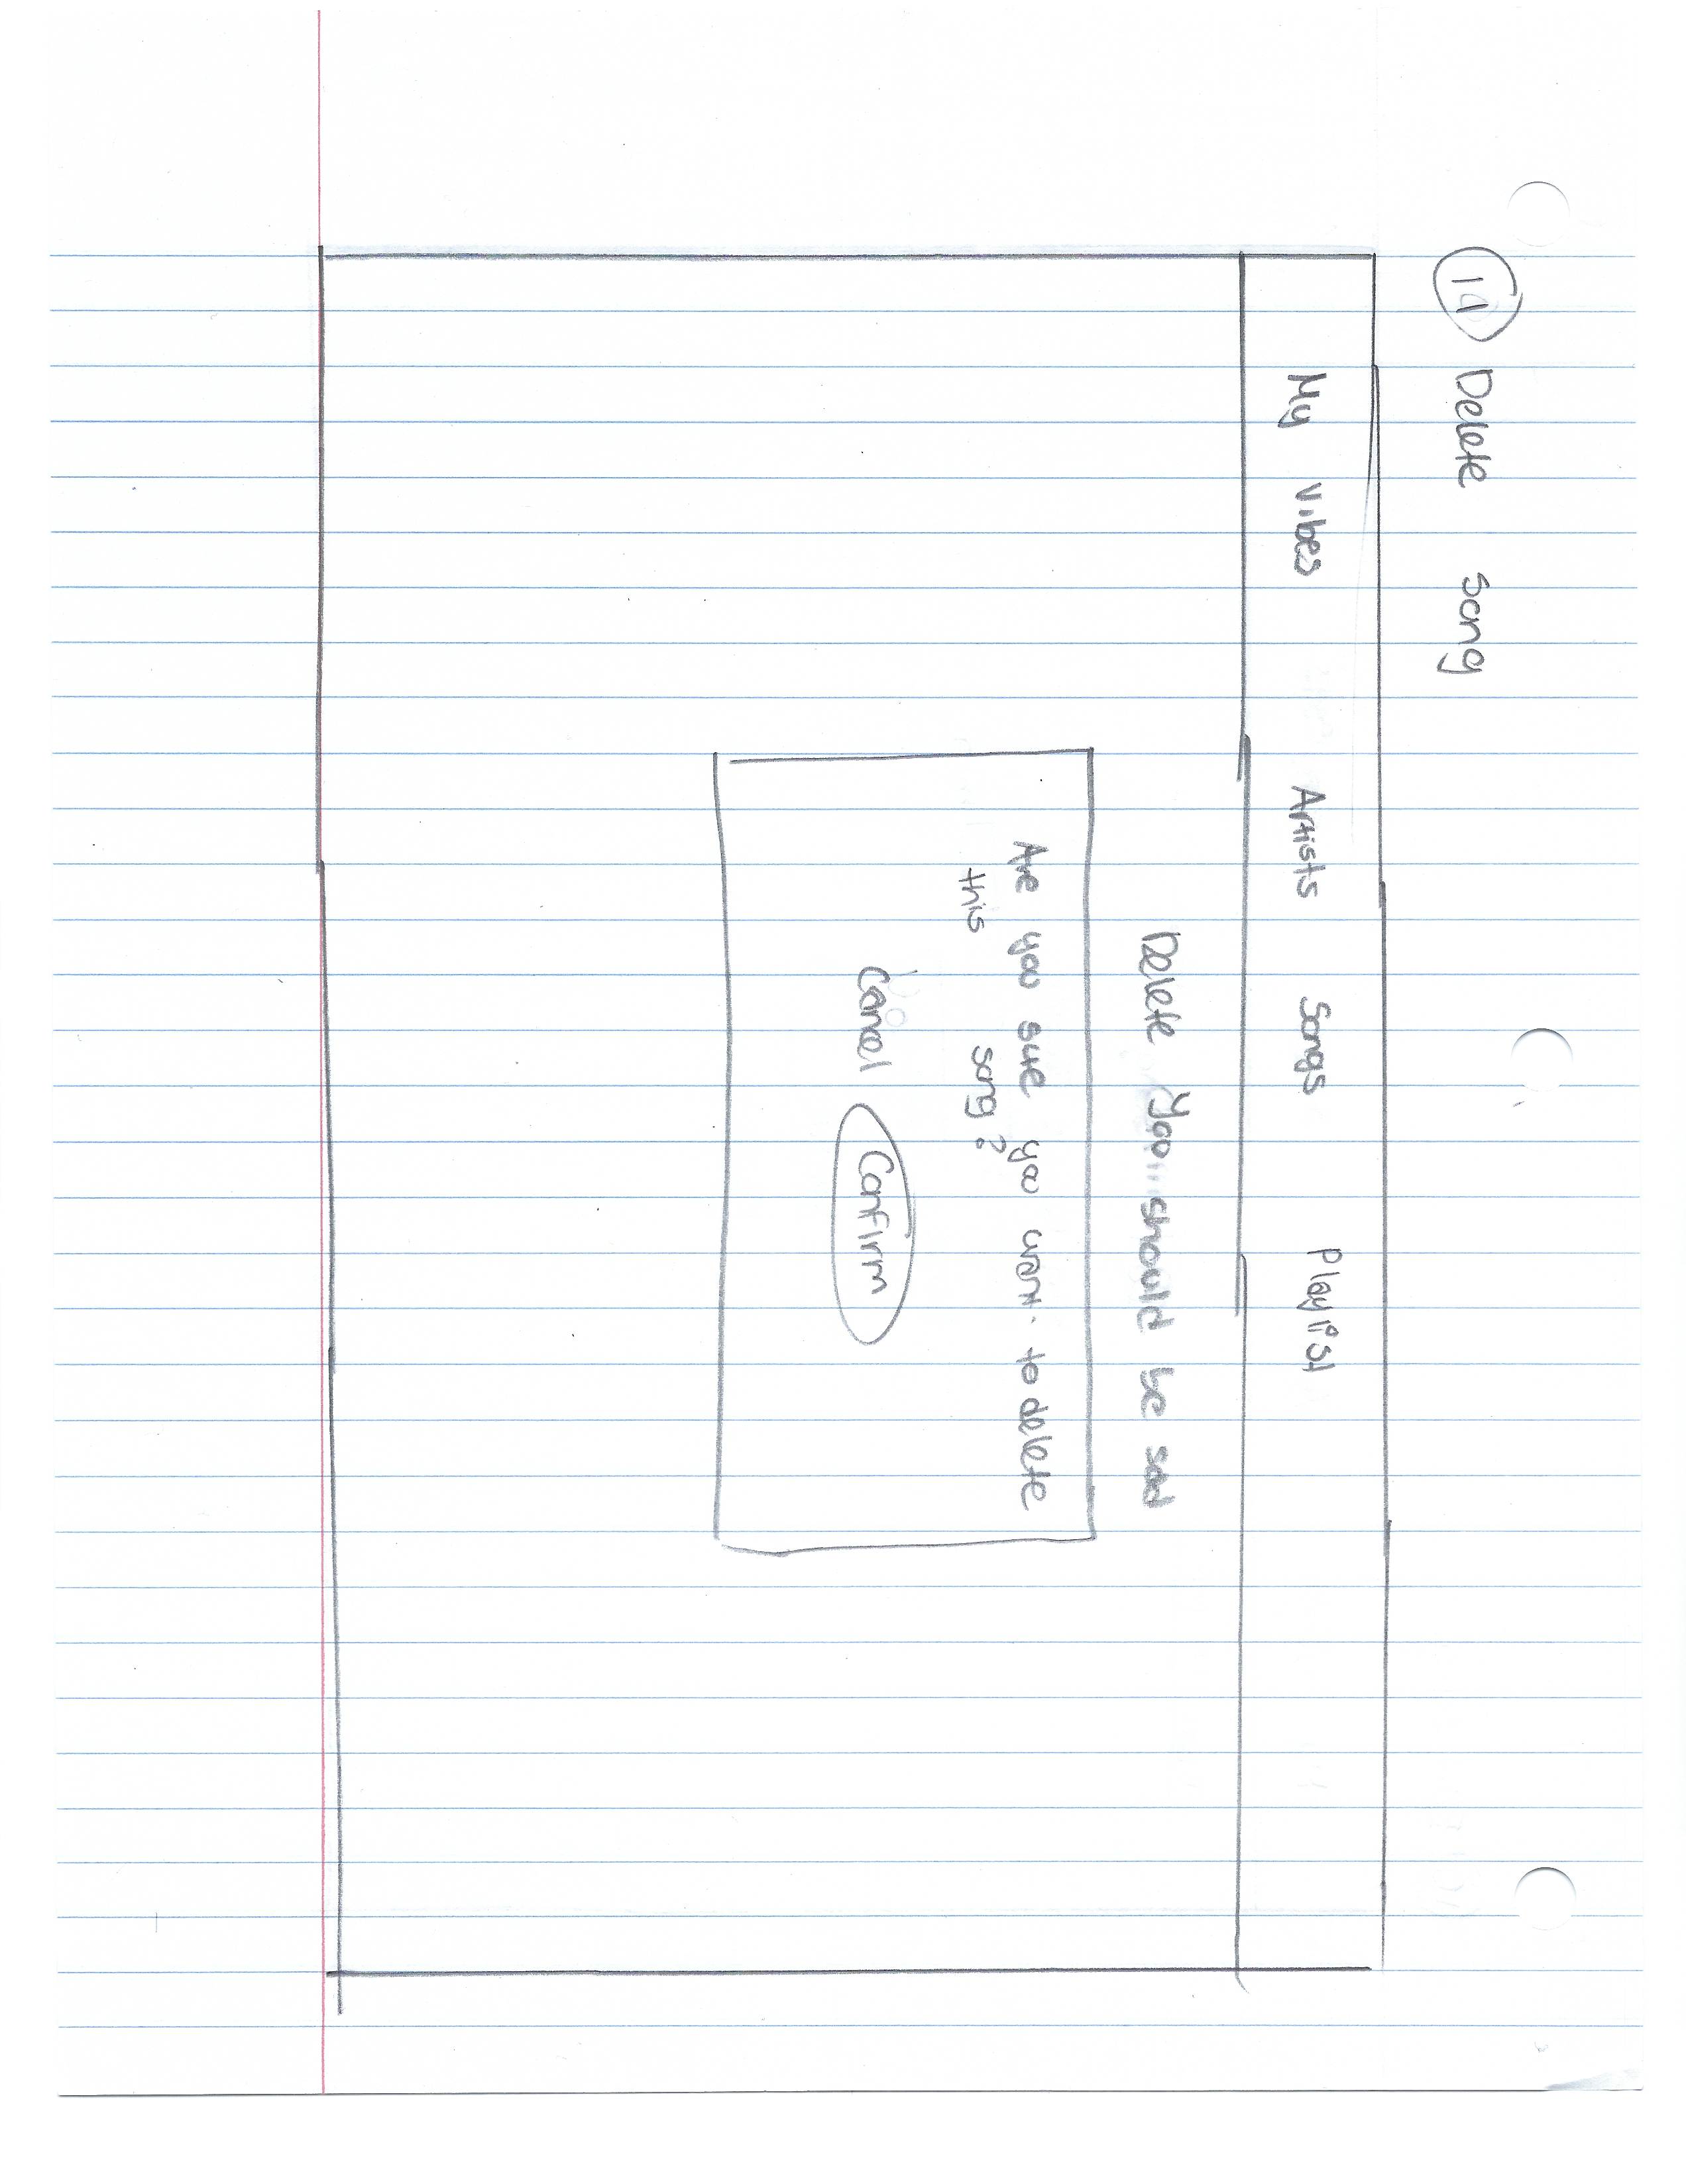 11 Delete Song
My Vibes Artists Songs Playlist
Delete You should be sad
Are you sure you want to delete
this song?
Cancel Confirm